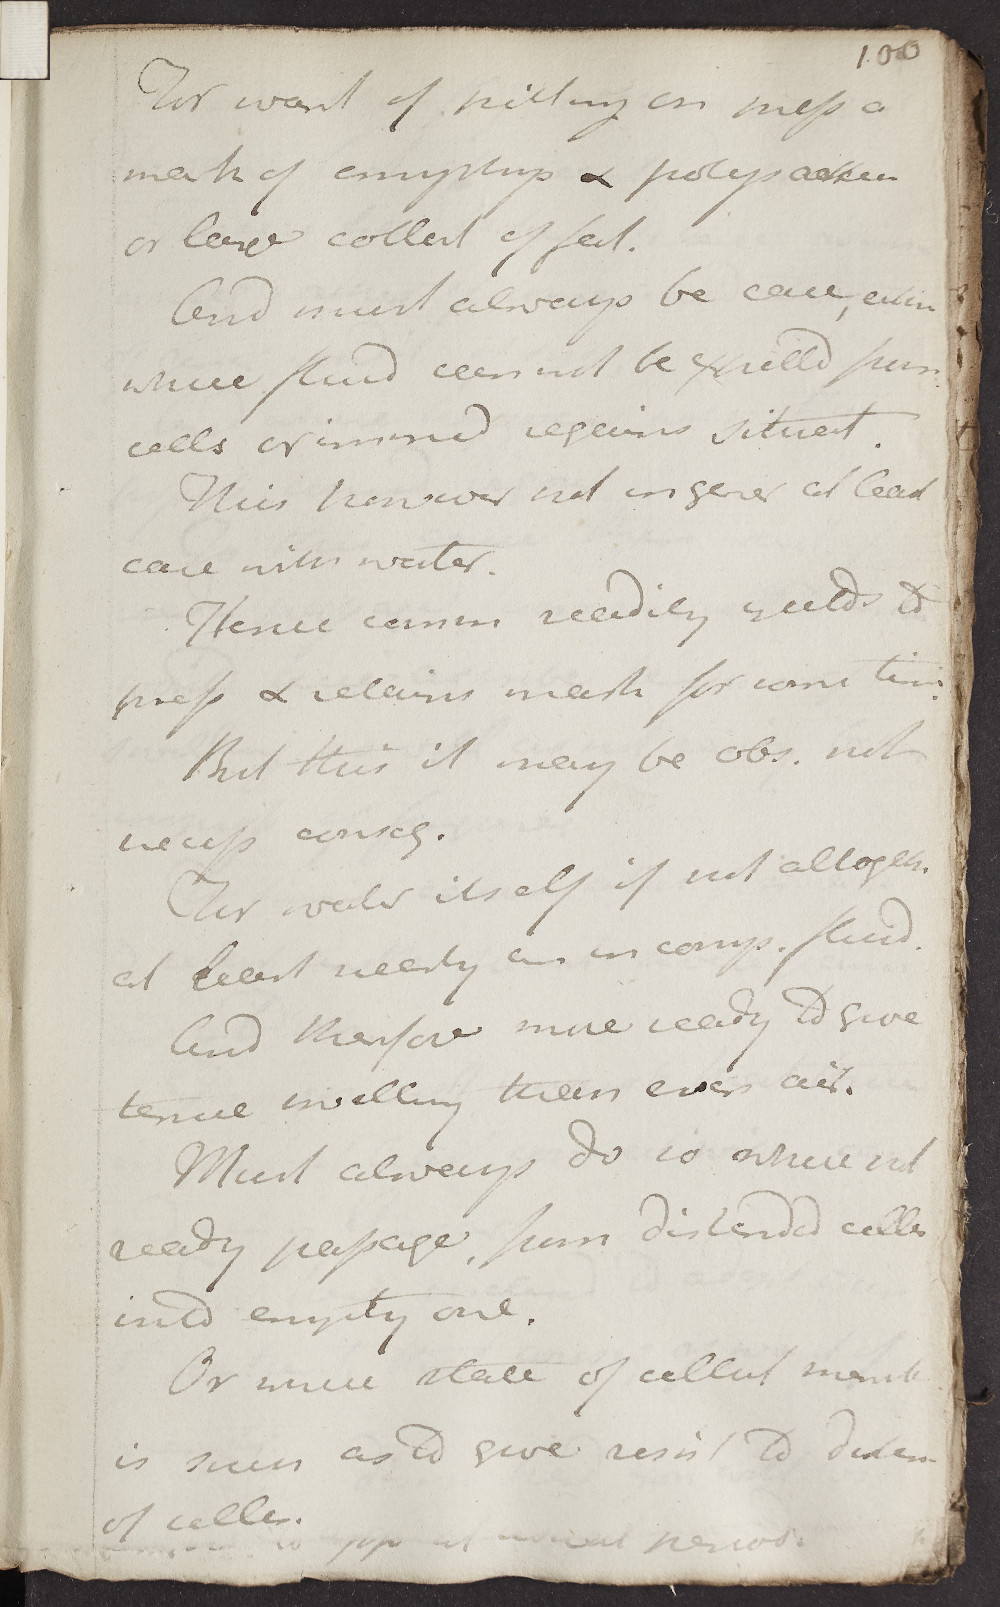 100
For want of pitting on press a
mark of emphys & polysarken
or large collect of fat.
And must always be case, even
where fluid can not be expelld from
cells or immed regains situat.
This however not in gener at least
case with water.
Hence comm readily yields to
press & retains mark for some time.
But this it may be obs. not
necess conseq.
For water itself if not altogeth.
at least nearly an incomp. fluid.
And therefore more ready to give
tense swelling than even air.
Must always do so where not
ready passage, from distended cells
into empty one.
Or where state of cellul memb
is such as to give resist to disten
of cells.